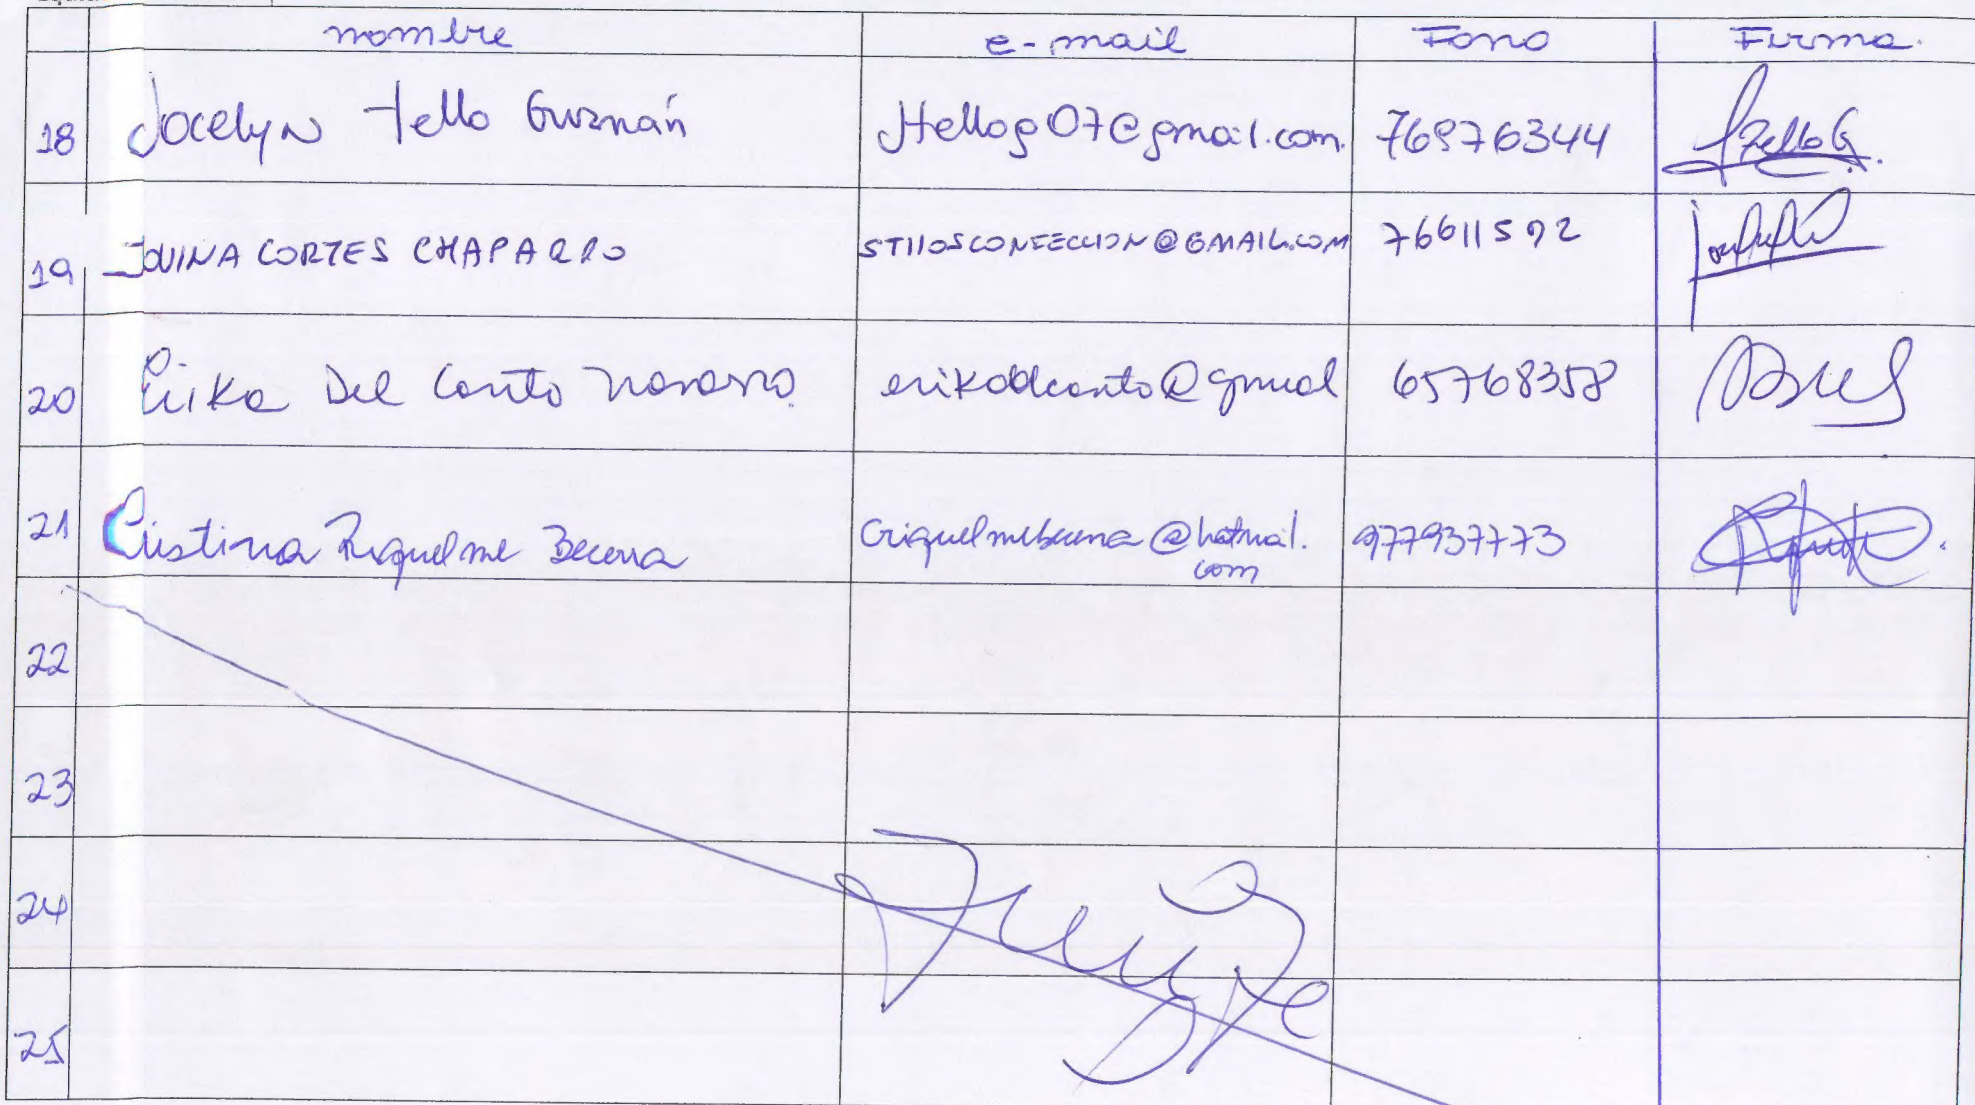 nombre e-mail Fono Firma.
18 Jocelyn Tello Guzmán Jtellog07@gmail.com. 76976344 JTelloG.
19 JOVINA CORTES CHAPARRO STILOSCONFECCION@GMAIL.COM 76611592
20 Erika Del Canto Navarro. erikadelcanto@gmail 65768358
21 Cristina Riquelme Becerra Criquelmebecerra@hotmail. 977937773
com
22
23
24
25